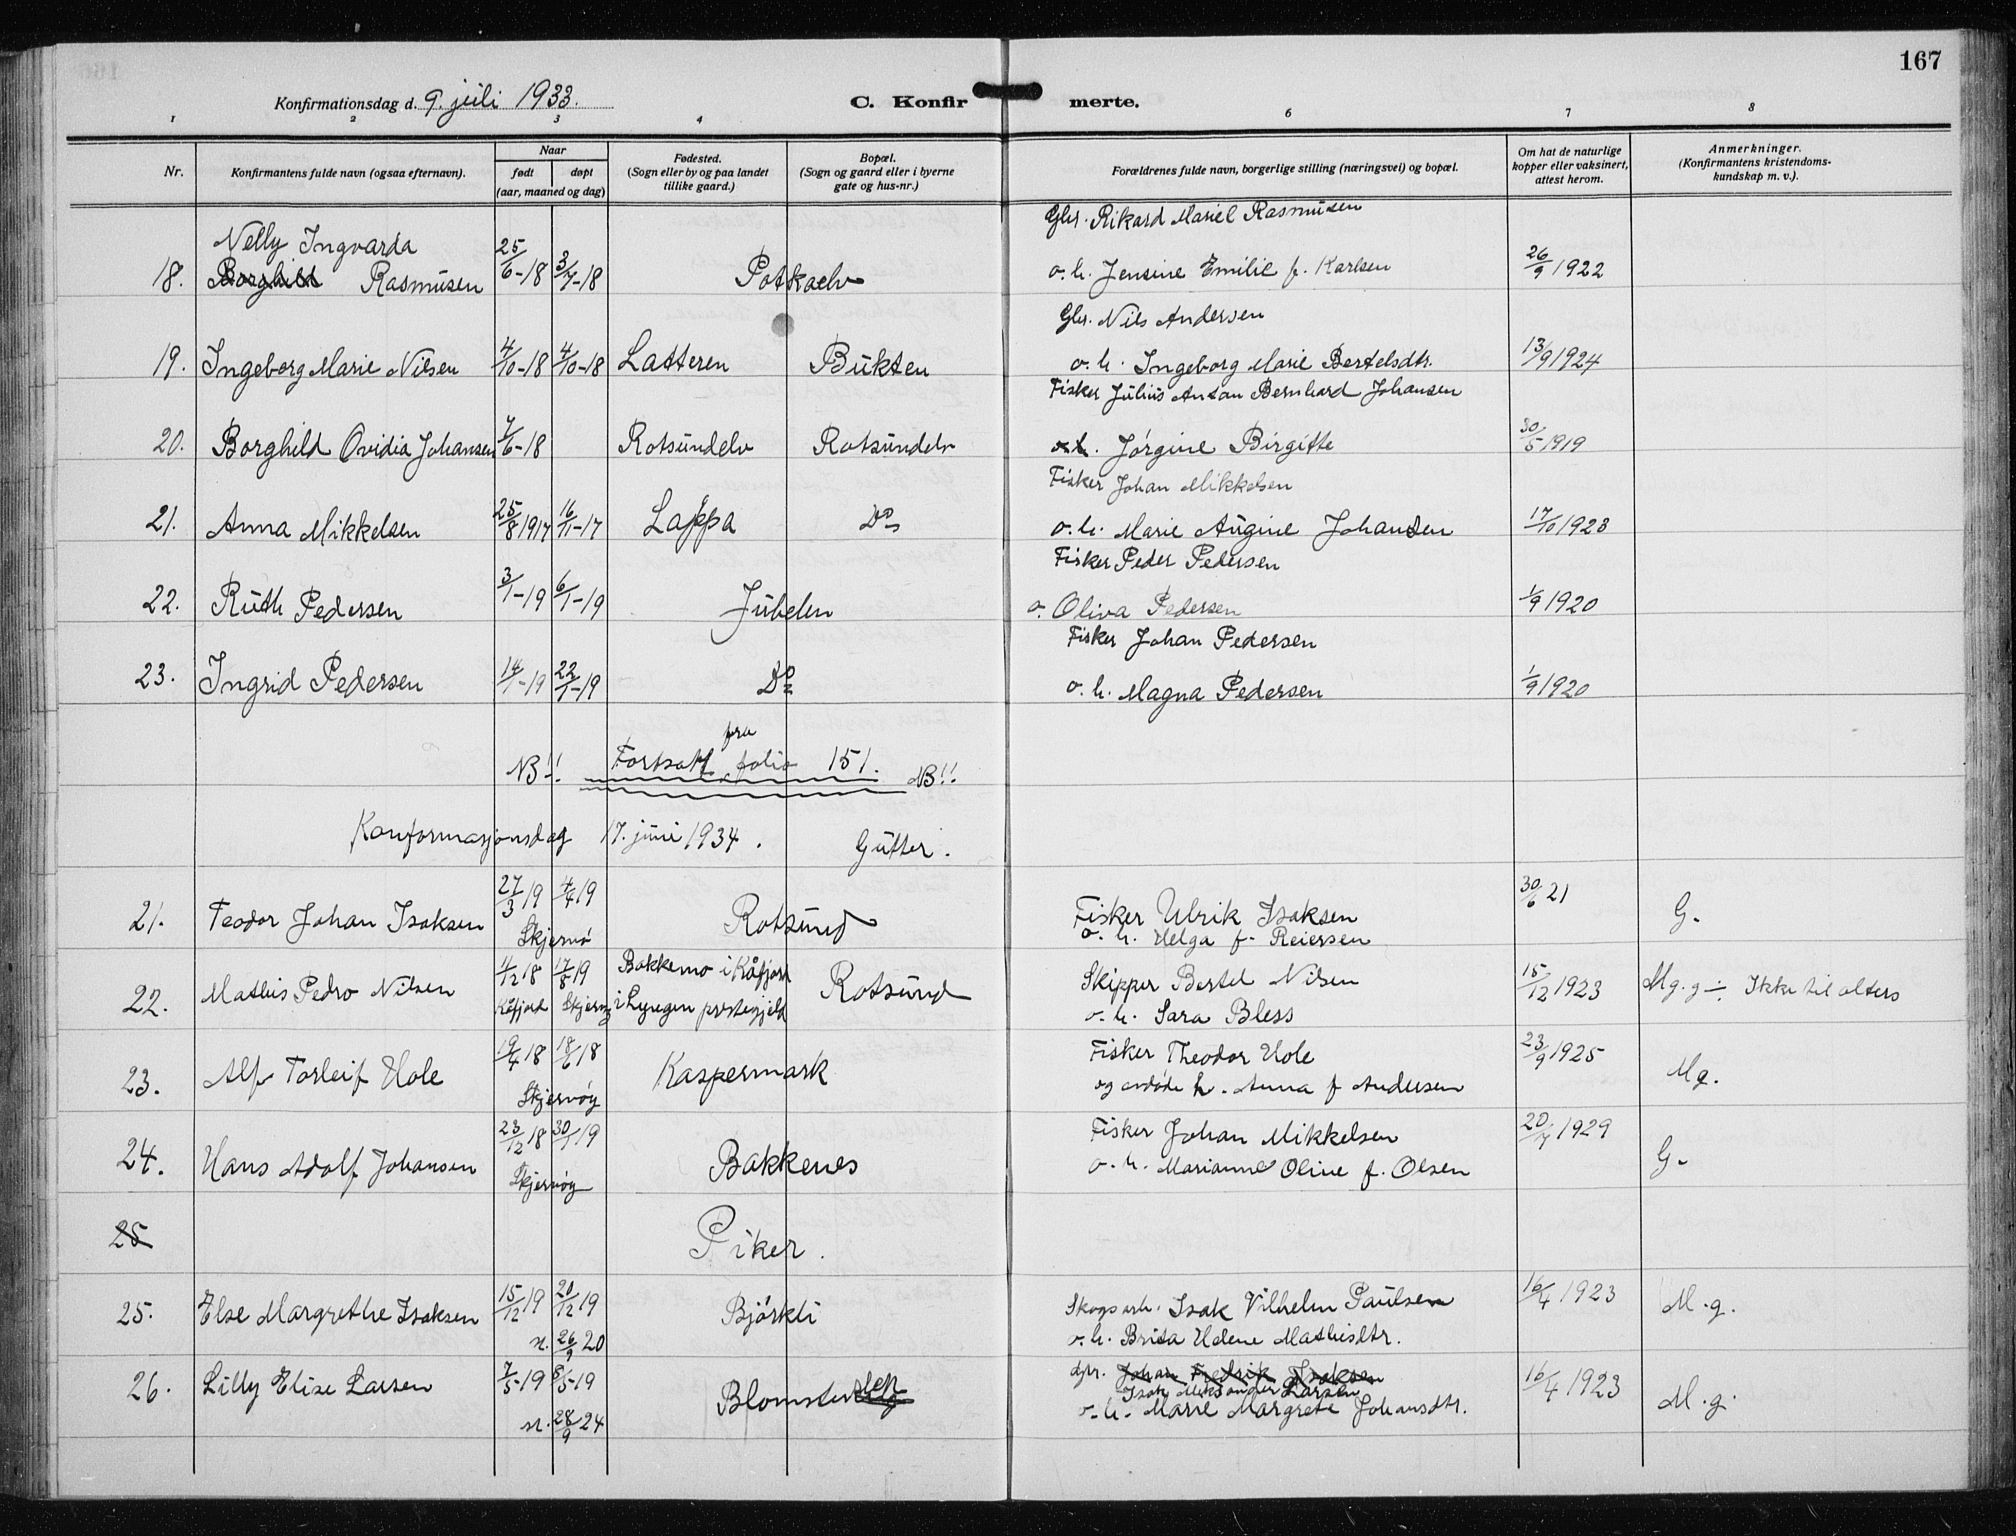 167
Konfirmationsdag d. 9. juli 1933. C. Konfirmerte.
1 2 3 4 6 7 8
Nr. Konfirmantens fulde navn (ogsaa efternavn). Naar født døpt (aar, maaned og dag) Fødested. (Sogn eller by og paa landet tillike gaard.) Bopæl. (Sogn og gaard eller i byerne gate og hus-nr.) Forældrenes fulde navn, borgerlige stilling (næringsvei) og bopæl. Om hat de naturlige kopper eller vaksinert, attest herom. Anmerkninger. (Konfirmantens kristendoms-kundskap m. v.).
Nelly Ingvarda Gbr. Rikard Mariel Rasmusen
18. Borghild Rasmusen 25/6-18 3/7-18 Potkaelv o. h. Jensine Emilie f. Karlsen 26/9 1922
Gbr. Nils Andersen
19. Ingeborg Marie Nilsen 4/10-18 4/10-18 Latteren Bukten o. h. Ingeborg Marie Bertelsdtr. 13/9 1924
Fisker Julius Antan Bernhard Johansen
20. Borghild Ovidia Johansen 7/6-18 Rotsundelv Rotsundelv o.h. Jørgine Birgitte 30/5 1919
Fisker Johan Mikkelsen
21. Anna Mikkelsen 25/8 1917 16/11-17 Lappa Do o. h. Marie Augine Johansen 17/10 1923
Fisker Peder Pedersen
22. Ruth Pedersen 3/1-19 6/1-19 Jubelen o. Oliva Pedersen 1/9 1920
Fisker Johan Pedersen
23. Ingrid Pedersen 14/1-19 22/1-19 Do o. h. Magna Pedersen 1/9 1920
fra
NB!! Fortsatt folio 151. NB!!
Konformasjonsdag 17. juni 1934. Gutter.
21. Teodor Johan Isaksen 27/3 19 4/4 19 Skjervø Rotsund Fisker Ulrik Isaksen 30/6 21 G.
o. h. Helga f. Reiersen
22. Mathis Pedro Nilsen 11/12 18 17/8 19 Bakkemo i Kåfjord Rotsund Skipper Bertel Nilsen 15/12 1923 Mg. g ÷. Ikke til alters
Kåfjord Skjervøy i Lyngen prestegjeld o. h. Sara Bless
23. Alf Torleif Hole 19/4 18 18/6 18 Skjervøy Kaspermark Fisker Theodor Hole 23/9 1925 Mg.
og avdøde h. Anna f Andersen
24. Hans Adolf Johansen 23/12 18 30/1 19 Skjervøy Bakkenes Fisker Johan Mikkelsen 20/7 1929 G.
o. h. Marianne Oline f. Olsen
25 Piker.
25. Else Margrethe Isaksen 15/12 19 20/12 19 Bjørkli Skogsarb. Isak Vilhelm Paulsen 16/4 1923 M.g.
n. 26/9 20 o. h. Brita Helene Mathisdtr.
26. Lilly Elise Larsen 7/5 19 8/5 19 Blomster Johan Fredrik Isaksen 16/4 1923 M.g.
Isak Larsen
n. 28/9 24 o. h. Marie Margrete Johansdtr.